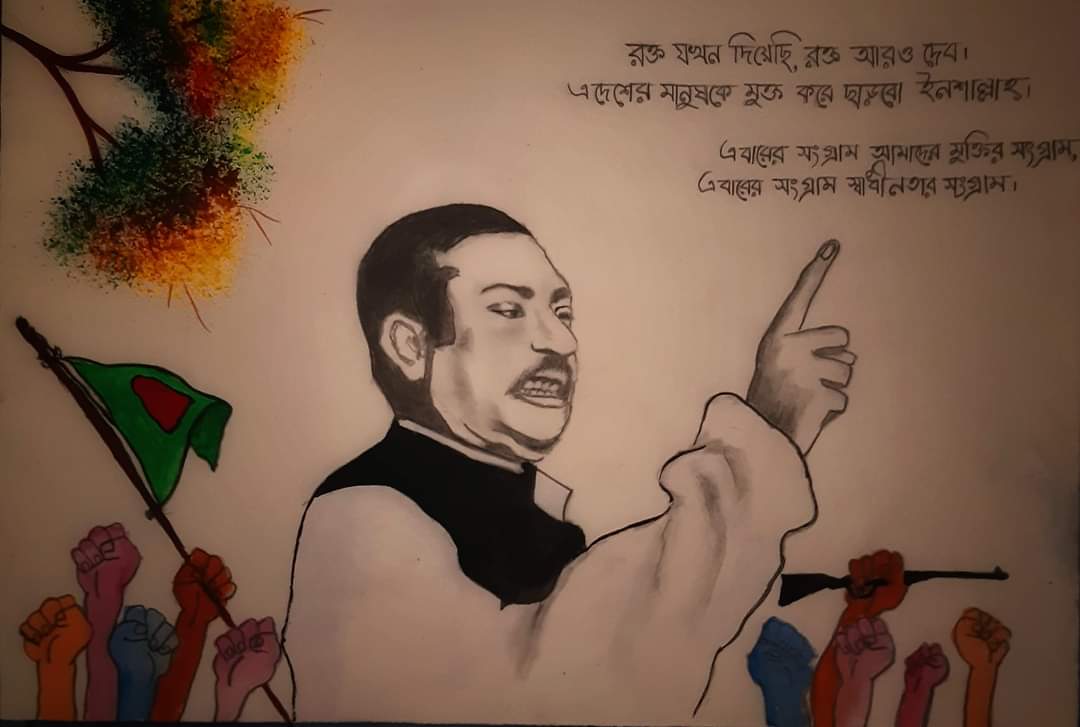 রক্ত যখন দিয়েছি, রক্ত আরও দেব।
এদেশের মানুষকে মুক্ত করে ছাড়বো ইনশাল্লাহ।
এবারের সংগ্রাম আমাদের মুক্তির সংগ্রাম,
এবারের সংগ্রাম স্বাধীনতার সংগ্রাম।